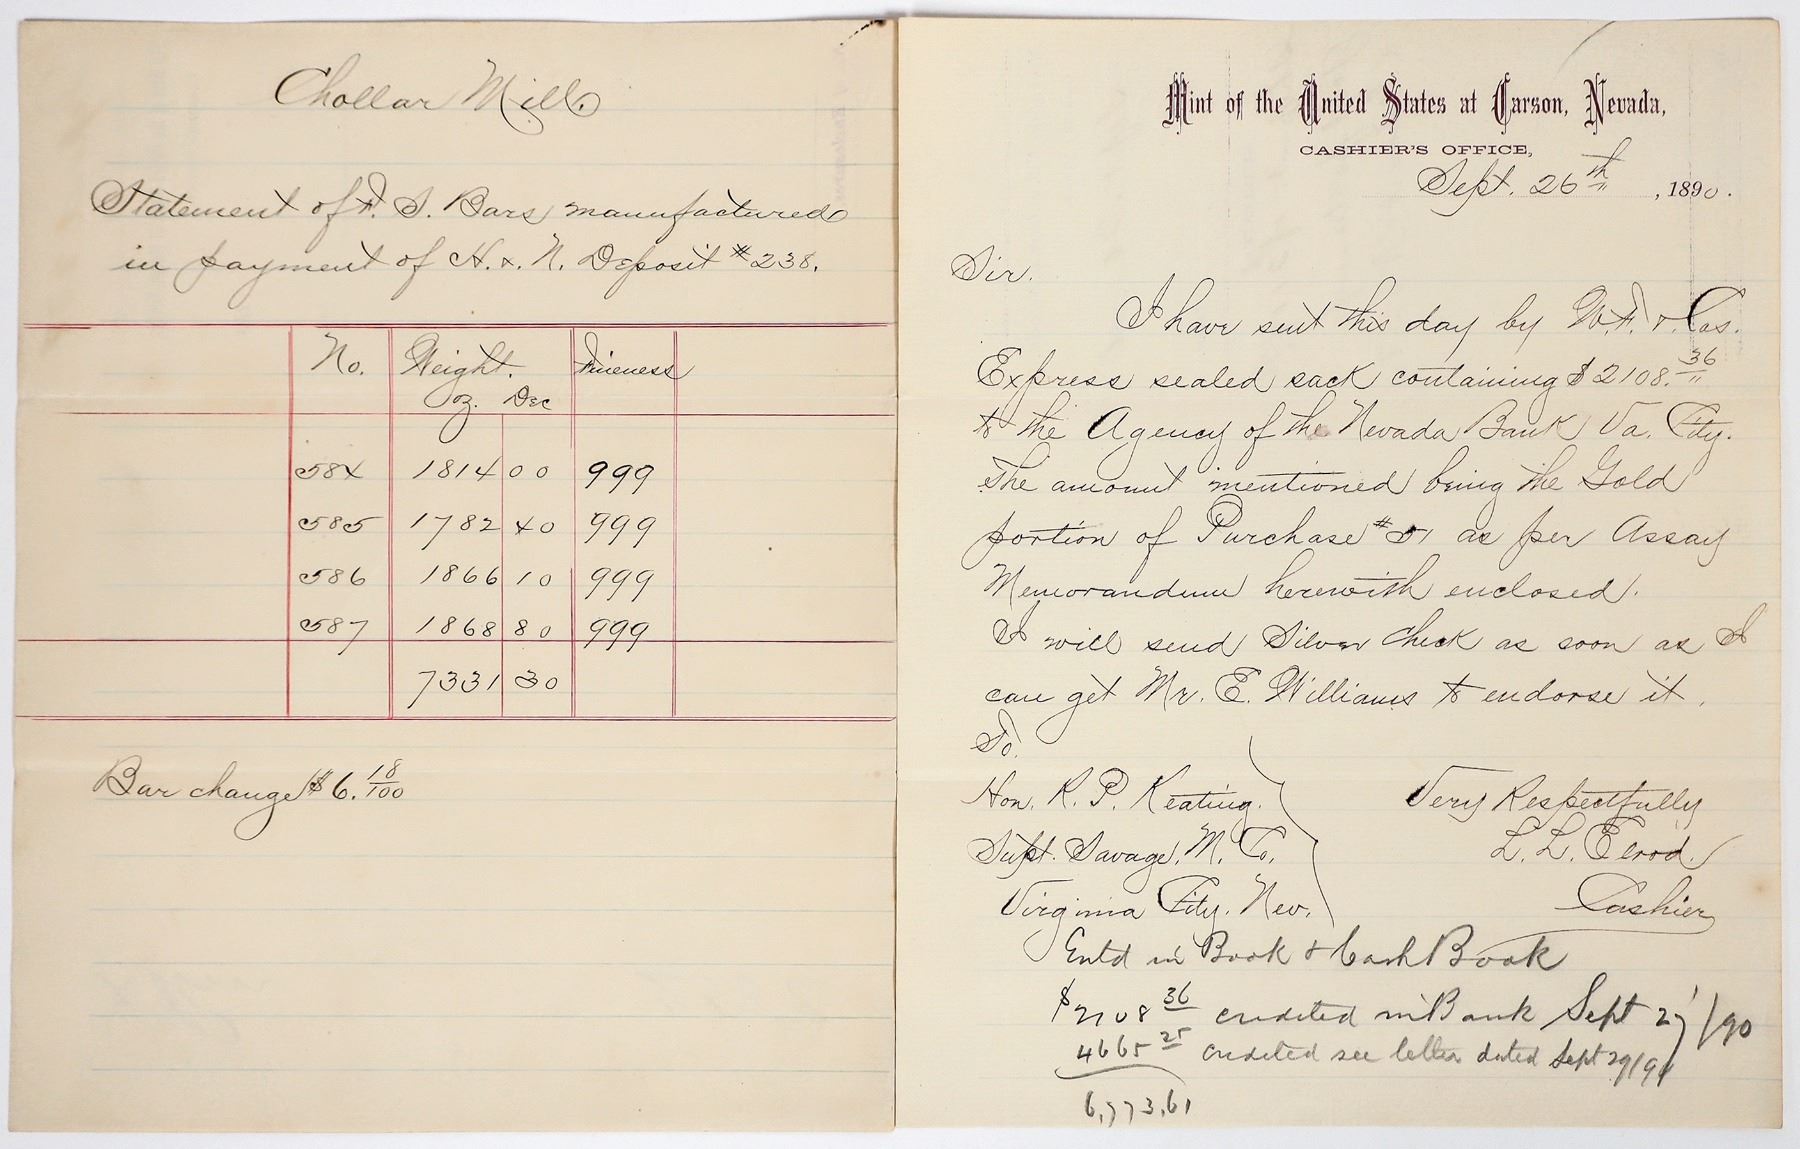 Chollar Mill.
Statement of F. S. Bars manufactured
in payment of H. & N. Deposit #238.
No. Weight. Fineness
oz. Dec
584 1814 00 999
585 1782 40 999
586 1866 10 999
587 1868 80 999
7331 30
Bar change $6. 18/100
Mint of the United States at Carson, Nevada,
CASHIER'S OFFICE,
Sept. 26th, 1890.
Sir.
I have sent this day by W. F. & Cos.
Express sealed sack containing $2108.36
to the Agency of the Nevada Bank Va. City.
The amount mentioned being the Gold
portion of Purchase #51 as per Assay
Memorandum herewith enclosed.
I will send Silver Check as soon as I
can get Mr. E. Williams to endorse it.
To.
Hon. R. P. Keating.
Supt. Savage. M. Co.
Virginia City. Nev.
Very Respectfully
L. L. Elrod.
Cashier
Entd in Book & Cash Book
$2108 36 credited in Bank Sept 27/90
4665 25 credited see letter dated Sept 29/90
6,773,61